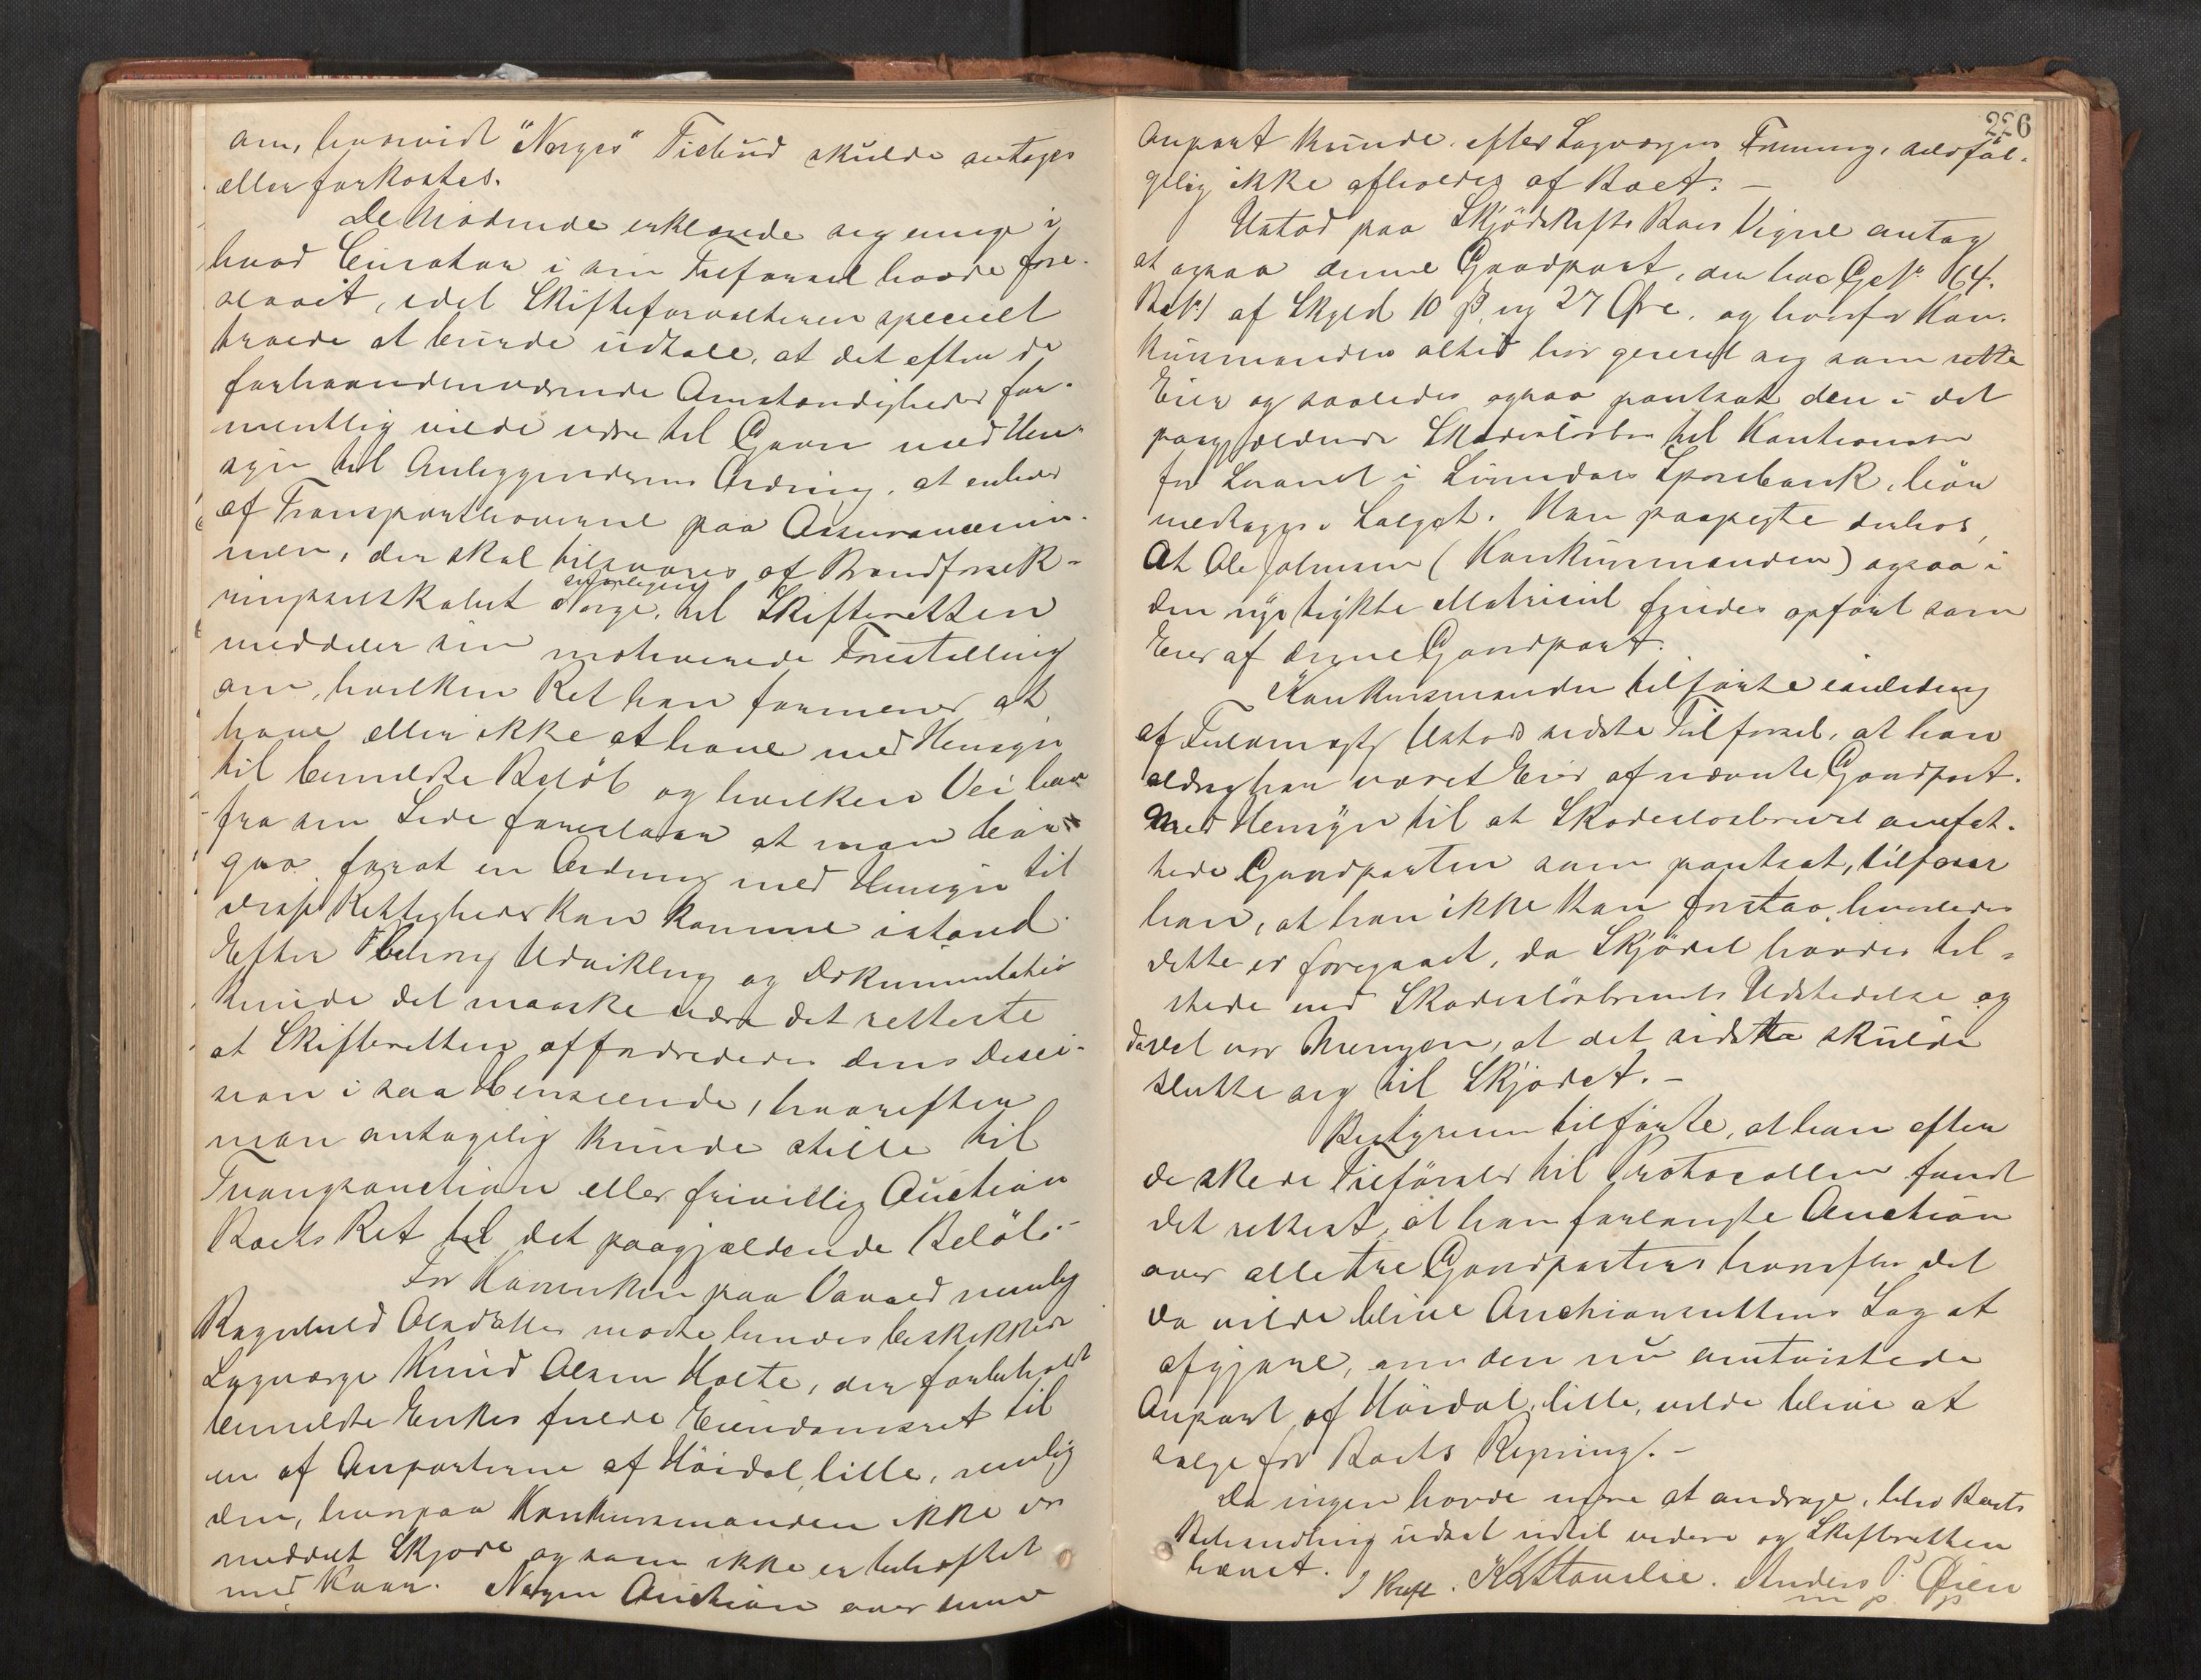 om, hvorvidt "Norges" Tilbud skulde antages
eller forkastes.
De Mødende erklærede sig enige i
hvad Curator i sin Tilførsel havde fore-
slaaet, idet Skifteforvalteren specielt
troede at burde udtale, at det efter de
forhaandenværende Omstændigheder for-
mentlig vilde være til Gavn med Hen-
syn til Anliggendernes Ordning, at enhver
af Transporthaverne paa Assurancesum-
men, der skal tilsvares af Brandforsik-
ringsselskabet Norge, til Skifteretten
meddeler sin motiverede Fremstilling
om, hvilken Ret han formener at
have eller ikke at have med Hensyn
til bemeldte Beløb og hvilken Vei han
fra sin Side foreslaar at man bør
gaa forat en Ordning med Hensyn til
disse Rettigheder kan komme istand.
Efter Udvikling og Dokumentation
kunde det maaske være det retteste
at Skifteretten affordredes dens Deci-
sion i saa Henseende, hvorefter
man antagelig kunde stille til
Tvangsauction eller frivillig Auction
Boets Ret til det paagjældende Beløb.-
For Kaarenken paa Vavold nemlig
Ragnhild Olsdatter mødte hendes beskikkede
Lagværge Knud Olsen Holte, der forbeholdt
bemeldte Enkes fulde Eiendomsret til
en af Anparterne af Høidal, lille, nemlig
den, hvorpaa Konkursmanden ikke er
meddelt Skjøde og som ikke er beheftet
med Kaar. Nogen Auction over denne
226
Anpart kunde efter Lagværgens Formening, selvføl-
gelig ikke afholdes af Boet. -
Ustad paa Skjødskift Boes Vegne antog
at ogsaa denne Gaardpart, der har G.No. 64.
B.No.1 af Skyld 10 ß og 27 Øre, og hvorfor Kon-
kursmanden altid har gereret sig som rette
Eier og saaledes ogsaa pantsat den i det
paagjældende Skadesløsbrev til Kautionisten
for Laanet i Surndals Sparebank, bør
medtages i Salget. Han paapegte derhos,
at Ole Johnsen (Konkursmanden) ogsaa i
den nye trykte Matricul findes opført som
Eier af denne Gaardpart.
Konkursmanden tilførte i anledning
af Fuldmægtig Ustads sidste Tilførsel, at han
aldrig har været Eier af nævnte Gaardpart.
Med Hensyn til at Skadesløsbrevet omfat-
tede Gaardparten som pantsat, tilfører
han, at han ikke kan forstaa, hvorledes
dette er foregaaet, da Skjødet havdes til-
stede ved Skadesløsbrevets Udstedelse og
det var Meningen, at det sidste skulde
slutte sig til Skjødet. -
Bestyreren tilførte, at han efter
de skede Tilførsler til Protocollen fandt
det rettest, at han forlangte Auction
over alle tre Gaardparter, hvorefter det
da vilde blive Auctionsrettens Sag at
afgjøre, om den nu omtvistede
Anpart af Høidal, lille, vilde blive at
sælge for Boets Regning. -
Da ingen havde mere at andrage, blev Boets
Behandling udsat indtil videre og Skifteretten
hævet. Anders P. Øien
m p